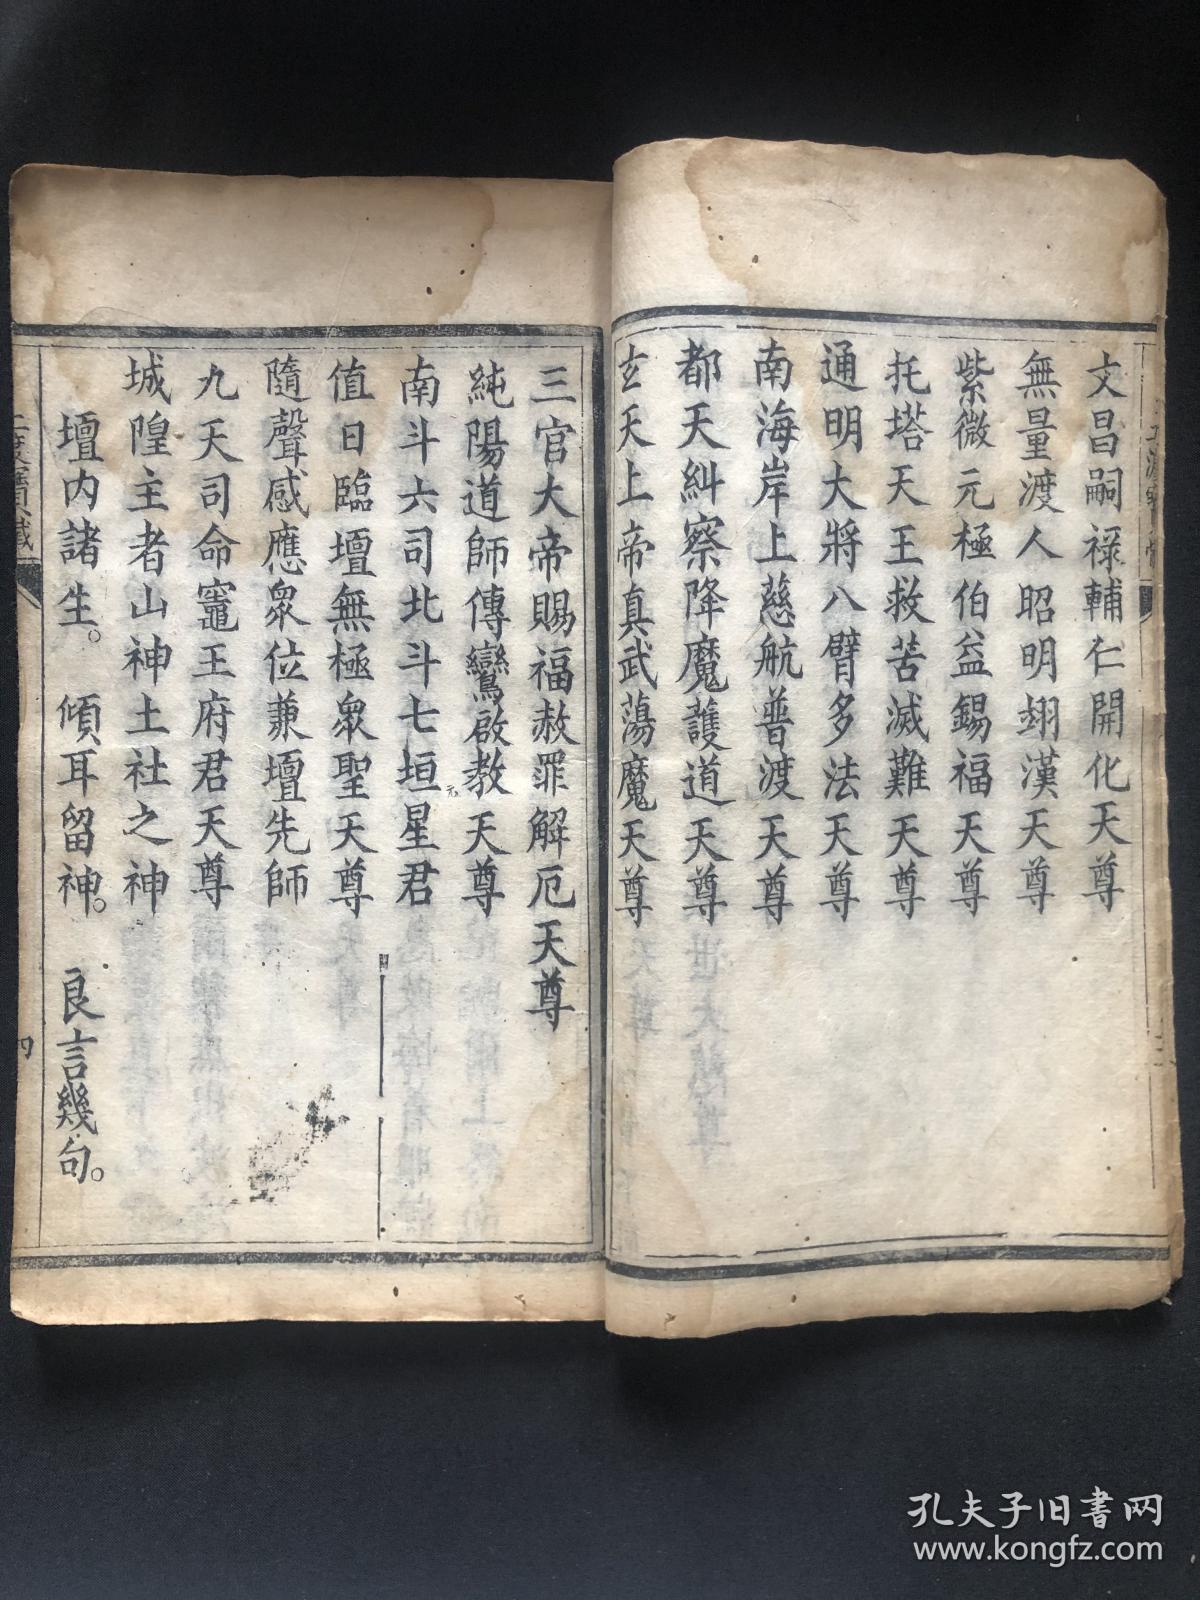 文昌嗣祿輔仁開化天尊
無量渡人昭明翊漢天尊
紫微元極伯益錫福天尊
托塔天王救苦滅難天尊
通明大將八臂多法天尊
南海岸上慈航普渡天尊
都天糾察降魔護道天尊
玄天上帝真武蕩魔天尊
三官大帝賜福赦罪解厄天尊
純陽道師傳鸞啟教天尊
南斗六司北斗七垣星君
元
值日臨壇無極衆聖天尊
隨聲感應衆位兼壇先師
九天司命竈王府君天尊
城隍主者山神土社之神
壇內諸生。 傾耳留神。 良言幾句。
四
孔夫子旧书网
www.kongfz.com